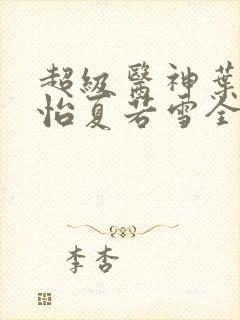 超級醫神葉
怡夏若雪全
李杏